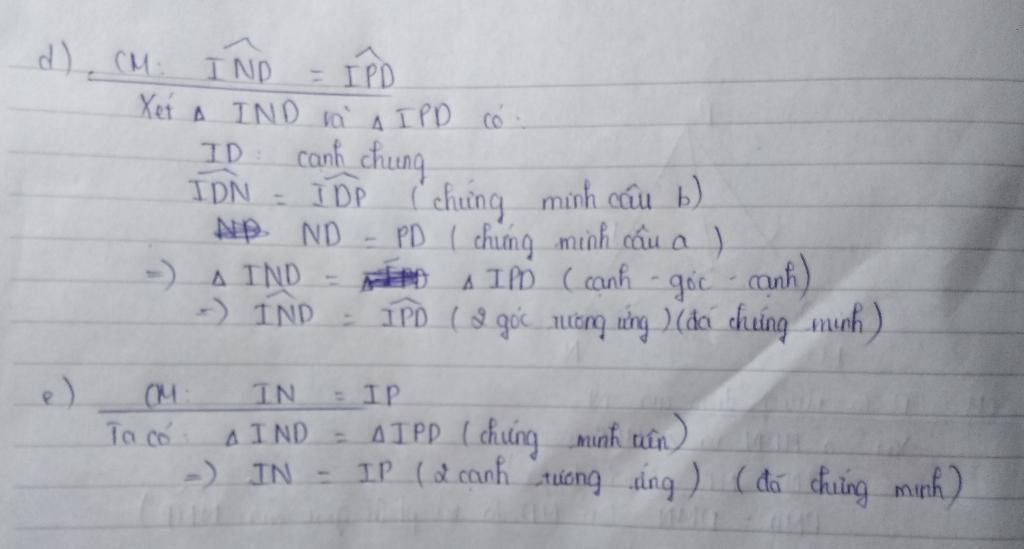 d) CM: IND = IPD
Xét Δ IND và Δ IPD có:
ID: cạnh chung
IDN = IDP (chứng minh câu b)
ND = PD (chứng minh câu a)
=) Δ IND = Δ IPD (cạnh - góc - cạnh)
=) IND = IPD (2 góc tương ứng) (đã chứng minh)
e) CM: IN = IP
Ta có: Δ IND = Δ IPD (chứng minh trên)
=) IN = IP (2 cạnh tương ứng) (đã chứng minh)